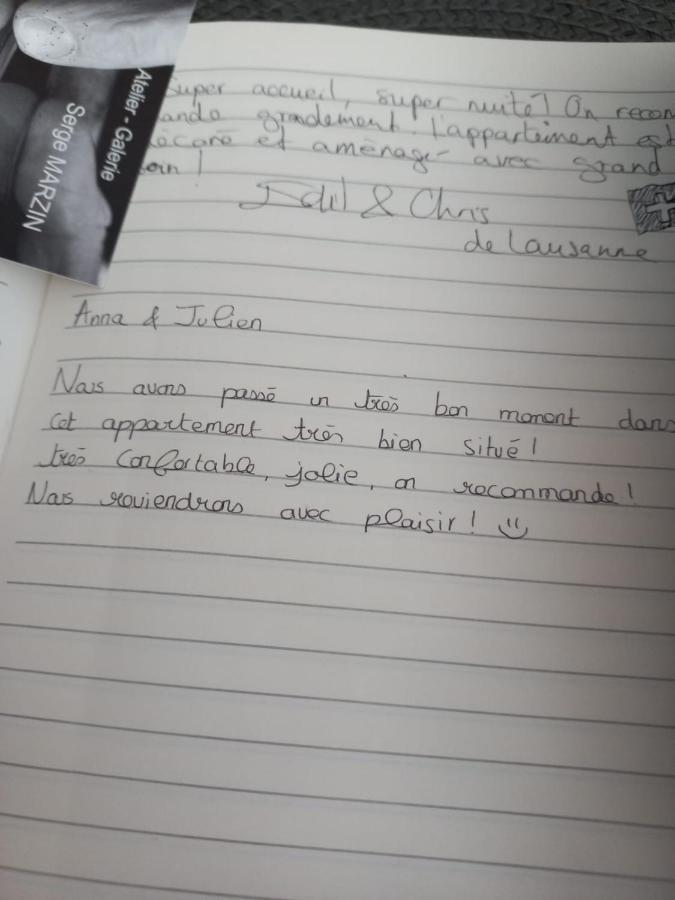 Atelier - Galerie
Serge MARZIN
Super accueil, super nuité! On recom
ande grandement. L'appartement est
décoré et aménagé avec grand
soin!
& Chris
de Lausanne
Anna & Julien
Nous avons passé un très bon moment dans
cet appartement très bien situé!
très confortable, jolie, on recommande!
Nous reviendrons avec plaisir!